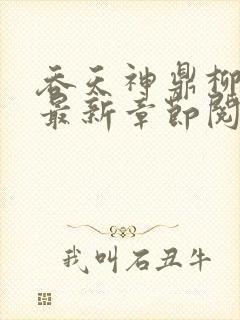 吞天神鼎柳
最新章节阅
我叫石丑牛